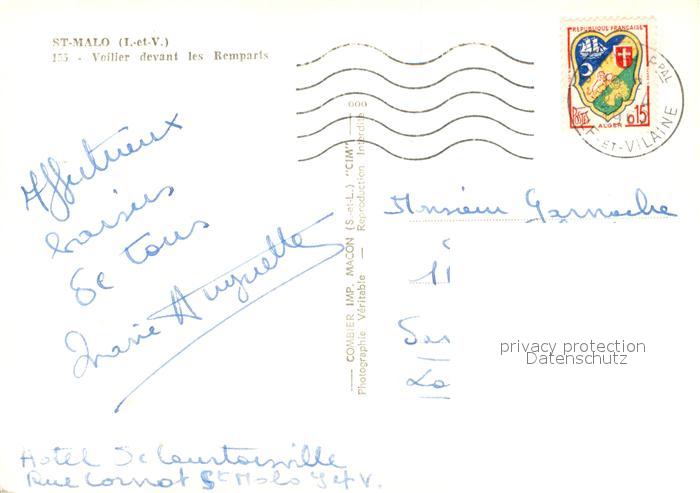 ST-MALO (I.-et-V.)
155 - Voilier devant les Remparts
Affectueux
baisers
de tous
Marie Huguette
Hotel de Courtoisville
Rue Carnot St Malo I et V.
COMBIER IMP. MACON (S.-et-L.) "CIM"
Photographie Véritable — Reproduction Interdite
REPUBLIQUE FRANÇAISE
POSTES
0,15
ALGER
PPAL
ET-VILAINE
Monsieur Garnache
11
privacy protection
Datenschutz